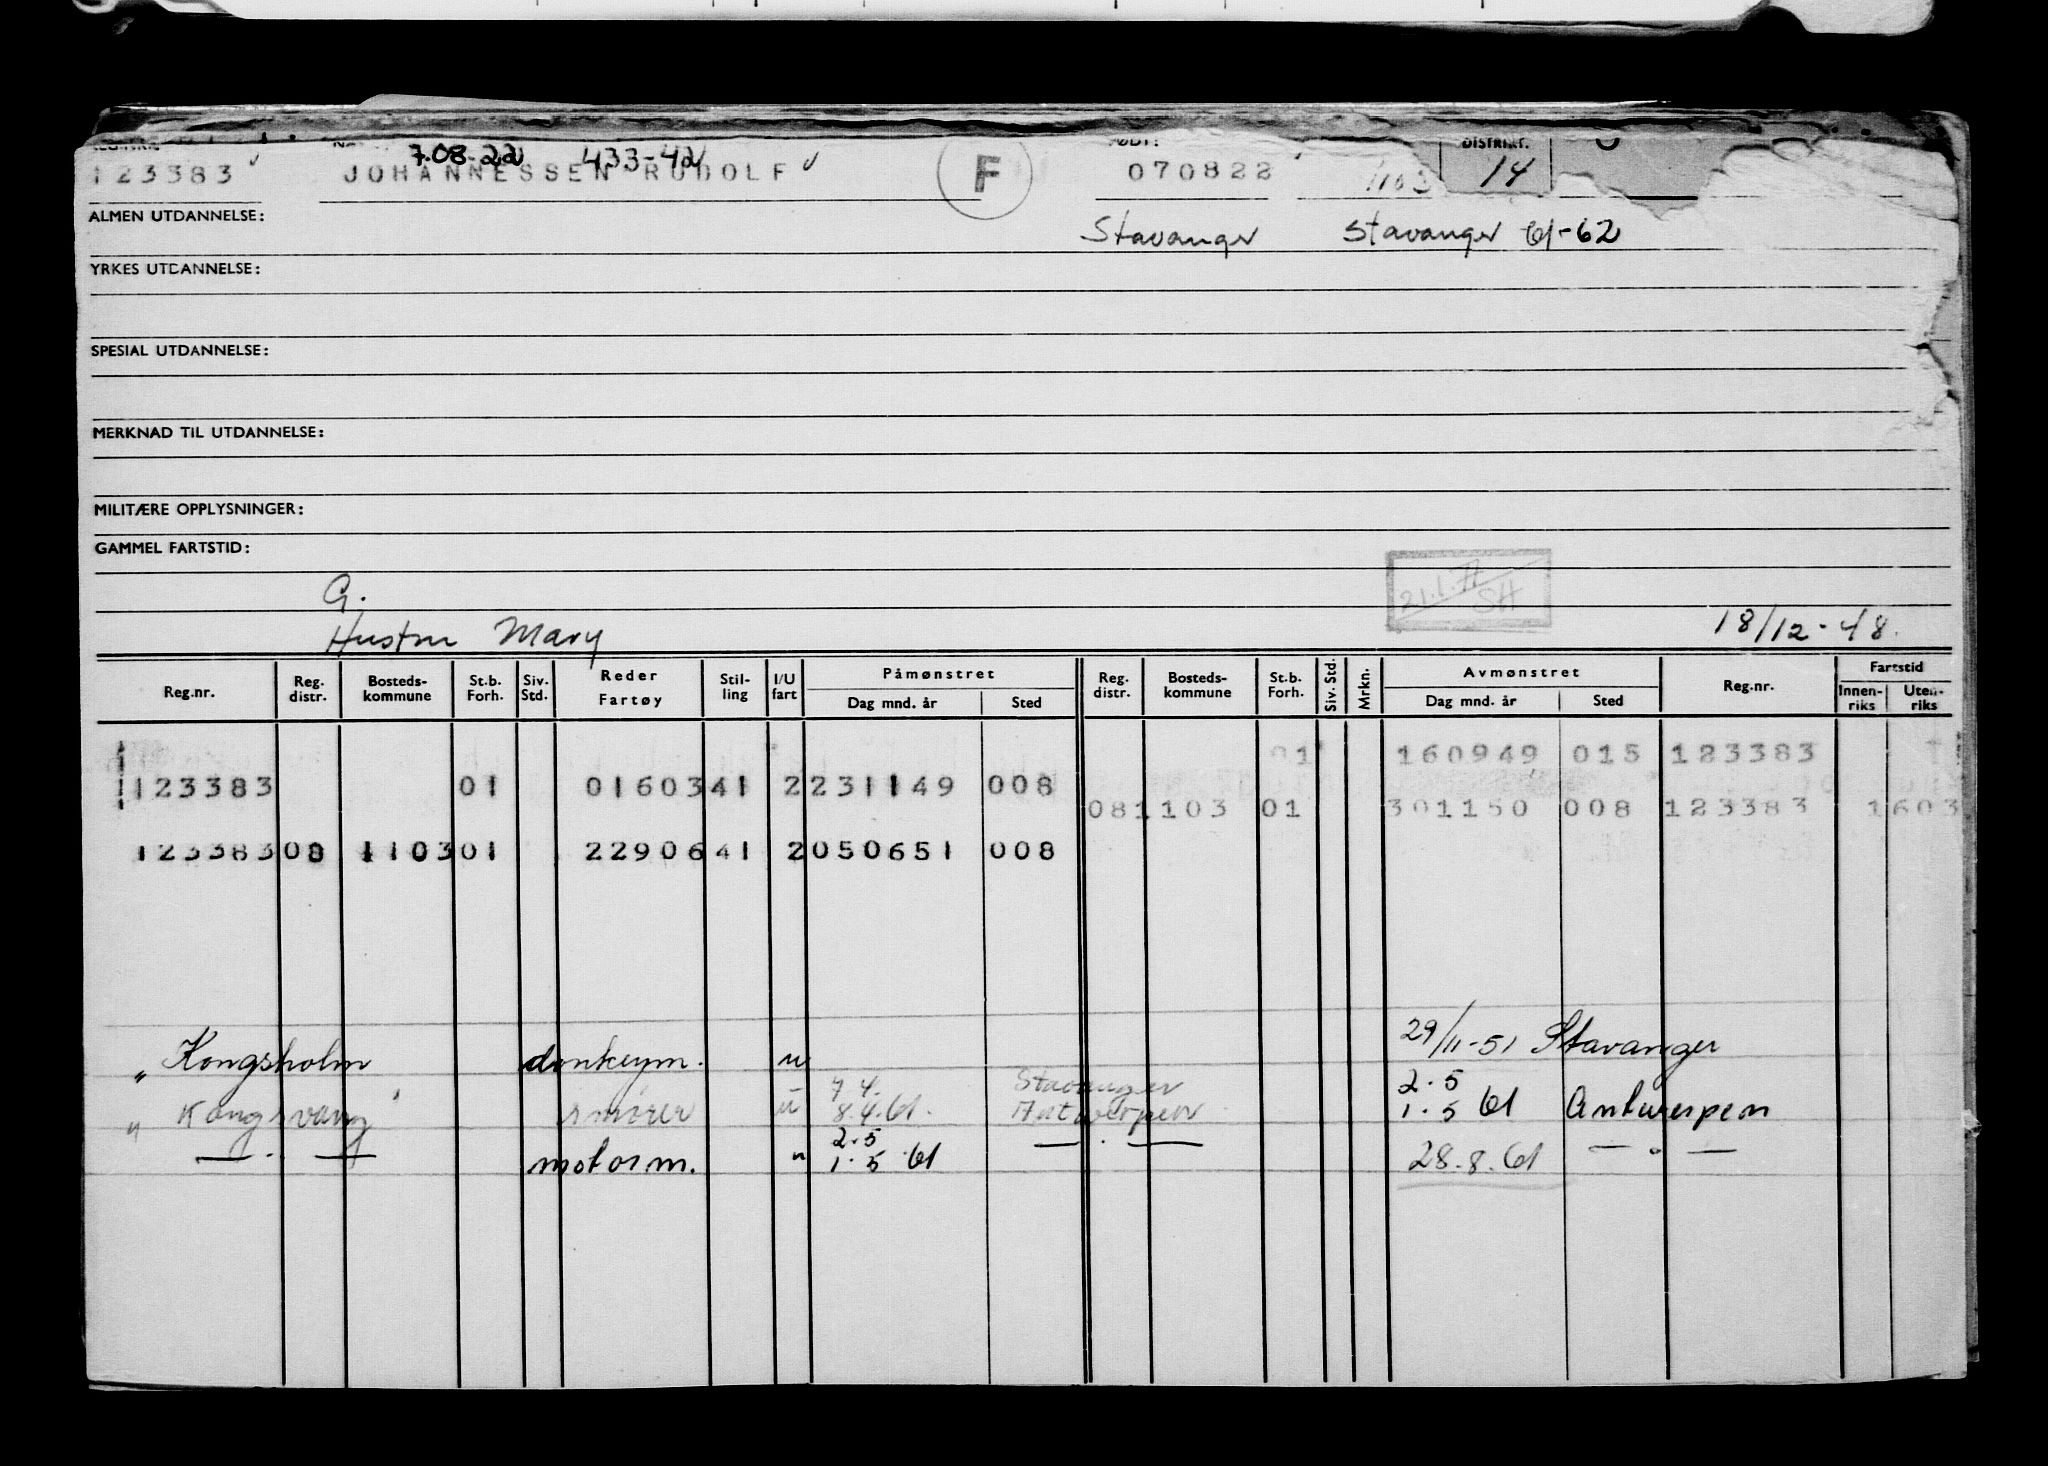 7.08.22 433-42
123383 JOHANNESSEN RUDOLF F 070822 1103 DISTRIKT. 14
ALMEN UTDANNELSE: Stavanger Stavanger 61-62
YRKES UTDANNELSE:
SPESIAL UTDANNELSE:
MERKNAD TIL UTDANNELSE:
MILITÆRE OPPLYSNINGER:
GAMMEL FARTSTID:
21.1.77 SH
G.
Hustru Mary 18/12-48.
Reg.nr. Reg. distr. Bosteds-kommune St.b. Forh. Siv. Std. Reder Fartøy Stil-ling I/U fart Påmønstret Dag mnd. år Sted Reg. distr. Bosteds-kommune St.b. Forh. Siv. Std. Mrkn. Avmønstret Dag mnd. år Sted Reg.nr. Fartstid Innen-riks Uten-riks
01 160949 015 123383
123383 01 0160341 2231149 008
081103 01 301150 008 123383 1603
12338308 110301 2290641 2050651 008
" Kongsholm donkeym. u 29/11-51 Stavanger
7.4. Stavanger 2.5
" Kongsvang smører u 8.4.61. Antwerpen 1.5 61 Antwerpen
2.5
— . — motorm. " 1.5 61 — . — 28.8.61 — . —